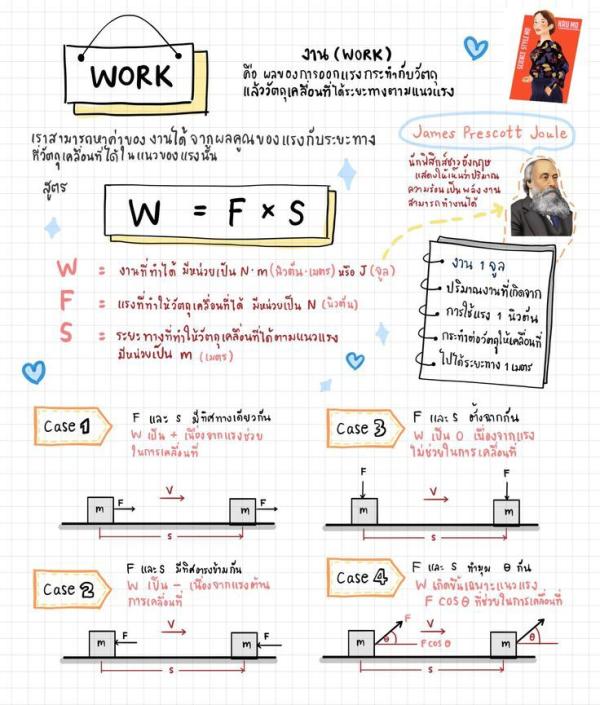 WORK
งาน (WORK)
คือ ผลของการออกแรงกระทำกับวัตถุ
แล้ววัตถุเคลื่อนที่ได้ระยะทางตามแนวแรง
SCIENCE STYLE MO
KRU MO
เราสามารถหาค่าของงานได้ จากผลคูณของแรงกับระยะทาง
ที่วัตถุเคลื่อนที่ได้ในแนวของแรงนั้น
สูตร
W = F × S
James Prescott Joule
นักฟิสิกส์ชาวอังกฤษ
แสดงให้เห็นว่าปริมาณ
ความร้อนเป็นพลังงาน
สามารถทำงานได้
W = งานที่ทำได้ มีหน่วยเป็น N·m (นิวตัน·เมตร) หรือ J (จูล)
F = แรงที่ทำให้วัตถุเคลื่อนที่ได้ มีหน่วยเป็น N (นิวตัน)
S = ระยะทางที่ทำให้วัตถุเคลื่อนที่ได้ตามแนวแรง
มีหน่วยเป็น m (เมตร)
งาน 1 จูล
ปริมาณงานที่เกิดจาก
การใช้แรง 1 นิวตัน
กระทำต่อวัตถุให้เคลื่อนที่
ไปได้ระยะทาง 1 เมตร
Case 1
F และ s มีทิศทางเดียวกัน
W เป็น + เนื่องจากแรงช่วย
ในการเคลื่อนที่
m F V m F
s
Case 3
F และ s ตั้งฉากกัน
W เป็น 0 เนื่องจากแรง
ไม่ช่วยในการเคลื่อนที่
F F
m V m
s
Case 2
F และ s มีทิศตรงข้ามกัน
W เป็น - เนื่องจากแรงต้าน
การเคลื่อนที่
m F V m F
s
Case 4
F และ s ทำมุม θ กัน
W เกิดขึ้นเฉพาะแนวแรง
F cos θ ที่ช่วยในการเคลื่อนที่
F
m θ V m θ
F cos θ
s